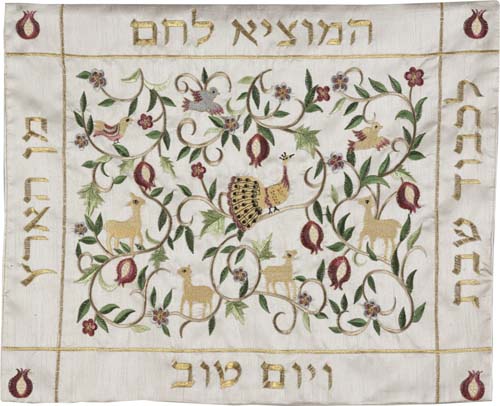 המוציא לחם
מן הארץ
לכבוד שבת
ויום טוב